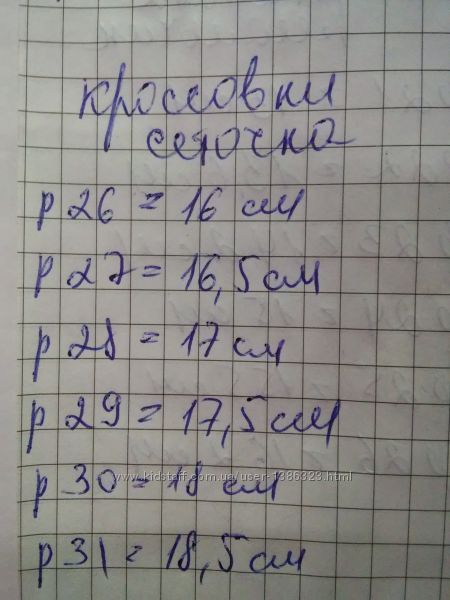 кроссовки
сеточка
р 26 = 16 см
р 27 = 16,5 см
р 28 = 17 см
р 29 = 17,5 см
www.kidstaff.com.ua/user-1386323.html
р 30 = 18 см
р 31 = 18,5 см